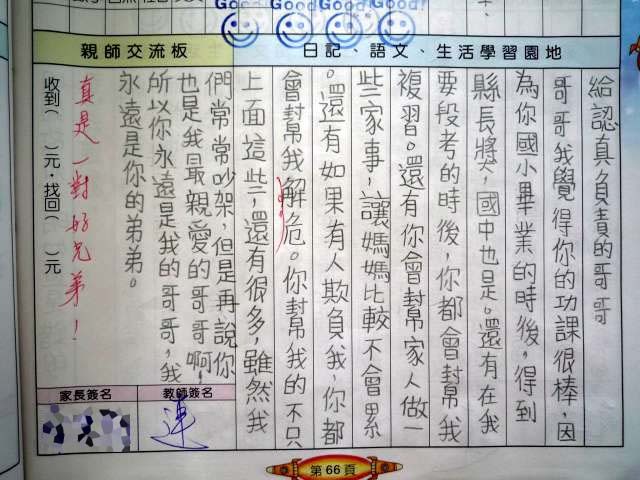 Good! Good! Good! Good!
日記、語文、生活學習園地
親師交流板
給認真負責的哥哥
哥哥我覺得你的功課很棒，因
為你國小畢業的時後，得到
縣長獎，國中也是。還有在我
要段考的時後，你都會幫我
複習。還有你會幫家人做一
些家事，讓媽媽比較不會累
。還有如果有人欺負我，你都
會幫我解危。你幫我的不只
上面這些，還有很多，雖然我
們常常吵架，但是再說你
也是我最親愛的哥哥啊，
所以你永遠是我的哥哥，我
永遠是你的弟弟。
真是一對好兄弟！
收到( )元，找回( )元
教師簽名
家長簽名
連
第66頁